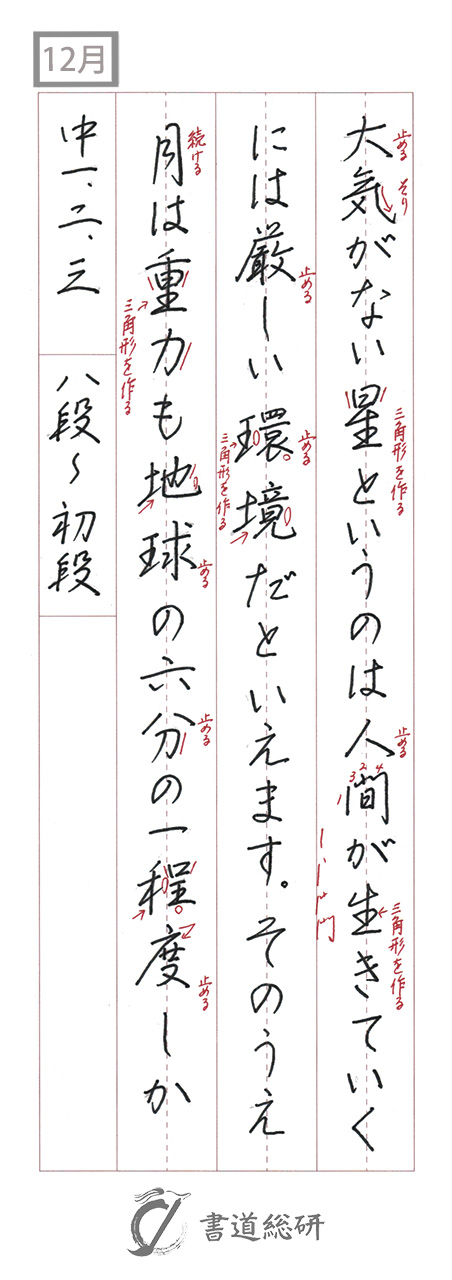 12月
大気がない星というのは人間が生きていく
止める
そり
三角形を作る
止める
1 3 2 4
三角形を作る
には厳しい環境だといえます。そのうえ
止める
止める
三角形を作る
月は重力も地球の六分の一程度しか
続ける
三角形を作る
止める
止める
止める
中一、二、三
八段〜初段
書道総研